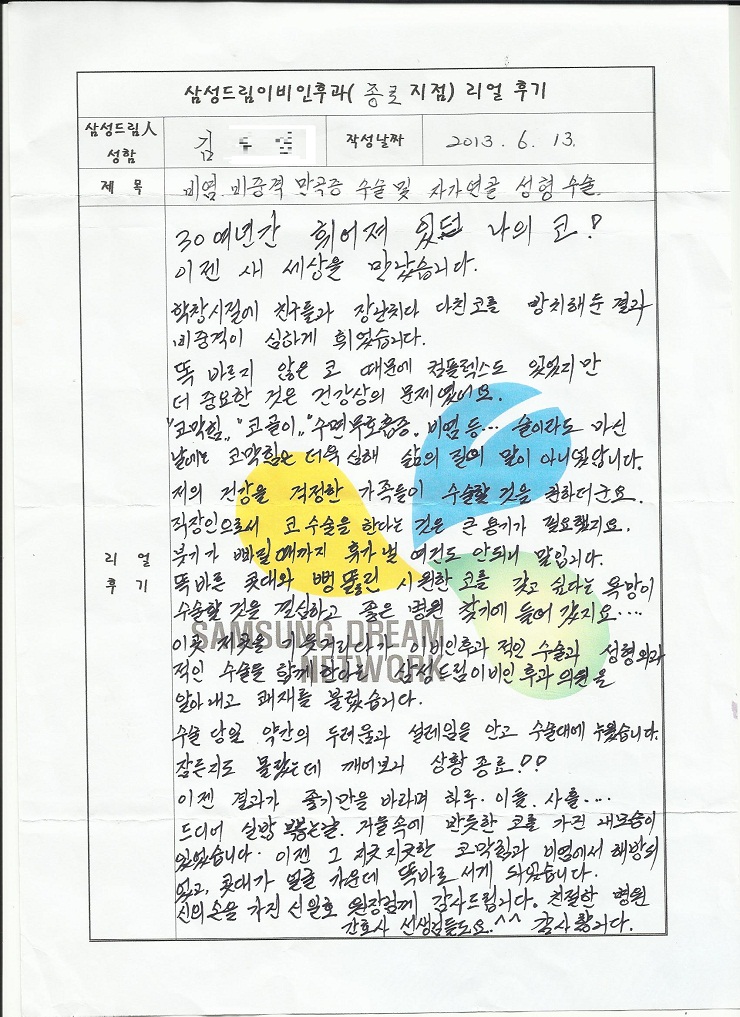 삼성드림이비인후과( 종로 지점) 리얼 후기
삼성드림人 성함
김
작성날짜
2013. 6. 13.
제 목
비염. 비중격 만곡증 수술 및 자가연골 성형 수술.
리 얼 후 기
30여년간 휘어져 있던 나의 코!
이젠 새 세상을 만났습니다.
학창시절에 친구들과 장난치다 다친코를 방치해 둔 결과
비중격이 심하게 휘었습니다.
똑 바르지 않은 코 때문에 컴플렉스도 있었지만
더 중요한 것은 건강상의 문제였어요.
"코막힘", "코골이", "수면무호흡증, 비염 등... 술이라도 마신
날에는 코막힘은 더욱 심해 삶의 질이 말이 아니었답니다.
저의 건강을 걱정한 가족들이 수술할 것을 권하더군요.
직장인으로서 코 수술을 한다는 것은 큰 용기가 필요했지요.
붓기가 빠질 때까지 휴가 낼 여건도 안되니 말입니다.
똑바른 콧대와 뻥 뚫린 시원한 코를 갖고 싶다는 욕망이
수술할 것을 결심하고 좋은 병원 찾기에 들어 갔지요....
이곳 저곳을 기웃거리다가 이비인후과 적인 수술과 성형외과
적인 수술을 함께한다는 삼성드림이비인후과의원을
알아내고 쾌재를 불렀습니다.
수술 당일 약간의 두려움과 설레임을 안고 수술대에 누웠습니다.
잠든지도 몰랐는데 깨어보니 상황 종료!!
이젠 결과가 좋기만을 바라며 하루. 이틀. 사흘....
드디어 실밥 뽑는날. 거울속에 반듯한 코를 가진 내모습이
있었습니다. 이젠 그 지긋지긋한 코막힘과 비염에서 해방되
었고, 콧대가 얼굴 가운데 똑바로 서게 되었습니다.
신의손을 가진 신일호 원장님께 감사드립니다. 친절한 병원
간호사 선생님들도요.^^ 감사합니다.
SAMSUNG DREAM
NETWORK